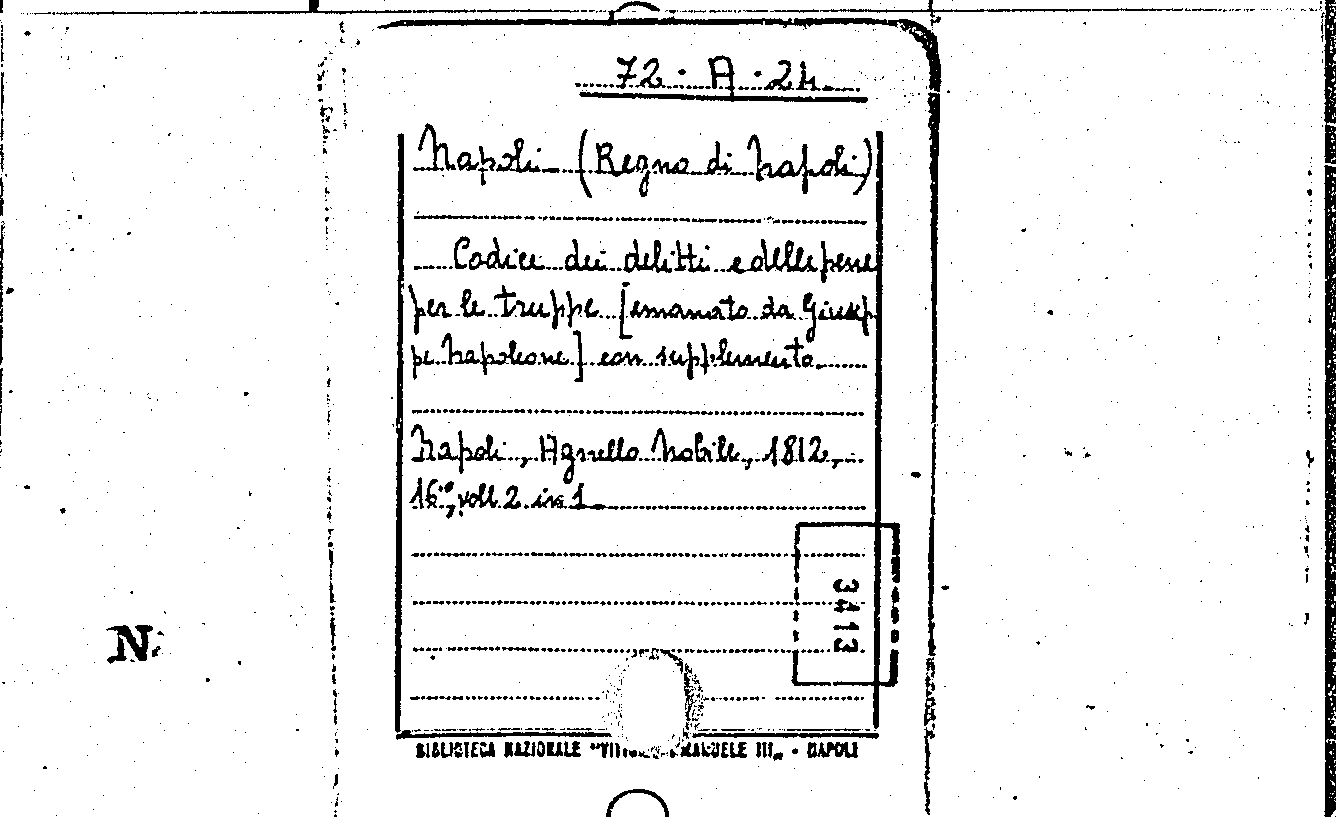 72. A. 24
Napoli (Regno di Napoli)
Codice dei delitti e delle pene
per le truppe [emanato da Giusep
pe Napoleone] con supplemento.
Napoli, Agnello Nobile, 1812,
16°, voll 2 in 1
3413
N.
BIBLIOTECA NAZIONALE "VITTORIO EMANUELE III„ - NAPOLI